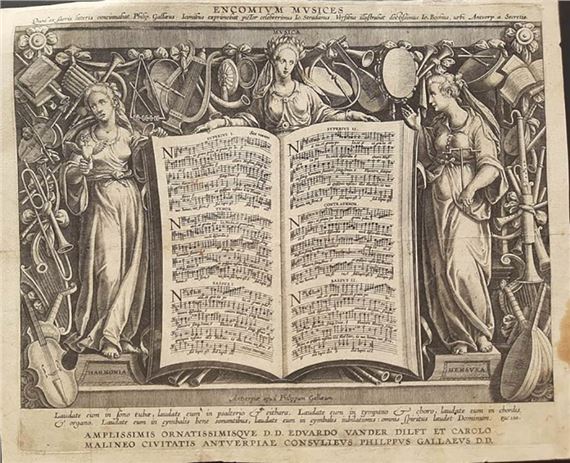 ENCOMIVM MVSICES
Quod ex sacris literis concinnabat Philip. Gallaeus. Iconibus exprimebat pictor celeberrimus Io. Stradanus. Versibus illustrabat doctissimus Io. Bochius, urbi Antverp. a Secretis.
MVSICA
SVPERIVS I.
SVPERIVS II.
TENOR
CONTRATENOR
BASSVS I
BASSVS II.
HARMONIA
MENSVRA
Antverpiae apud Philippum Gallaeum
Laudate eum in sono tubae, laudate eum in psalterio & cithara. Laudate eum in tympano & choro, laudate eum in chordis
& organo. Laudate eum in cymbalis bene sonantibus, laudate eum in cymbalis iubilationis: omnis spiritus laudet Dominum.
AMPLISSIMIS ORNATISSIMISQVE D.D. EDVARDO VANDER DILFT ET CAROLO
MALINEO CIVITATIS ANTVERPIAE CONSVLIBVS PHILPPVS GALLAEVS D.D.